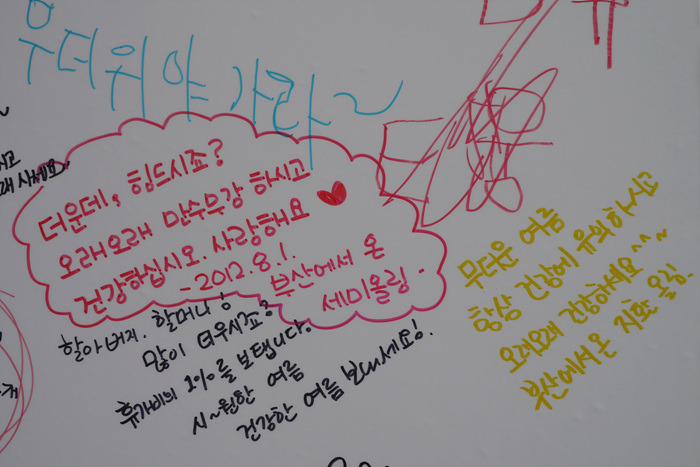 무더위야 가라~
더운데, 힘드시죠?
오래오래 만수무강 하시고
건강하십시오. 사랑해요
-2012.8.1.
부산에서 온
세미올림.
무더운 여름
항상 건강에 유의하시고
오래오래 건강하세요^^~
부산에서 온 지환 올림.
할아버지. 할머니
많이 더우시죠?
휴가비의 1%를 보탭니다.
시~원한 여름
건강한 여름 보내세요!